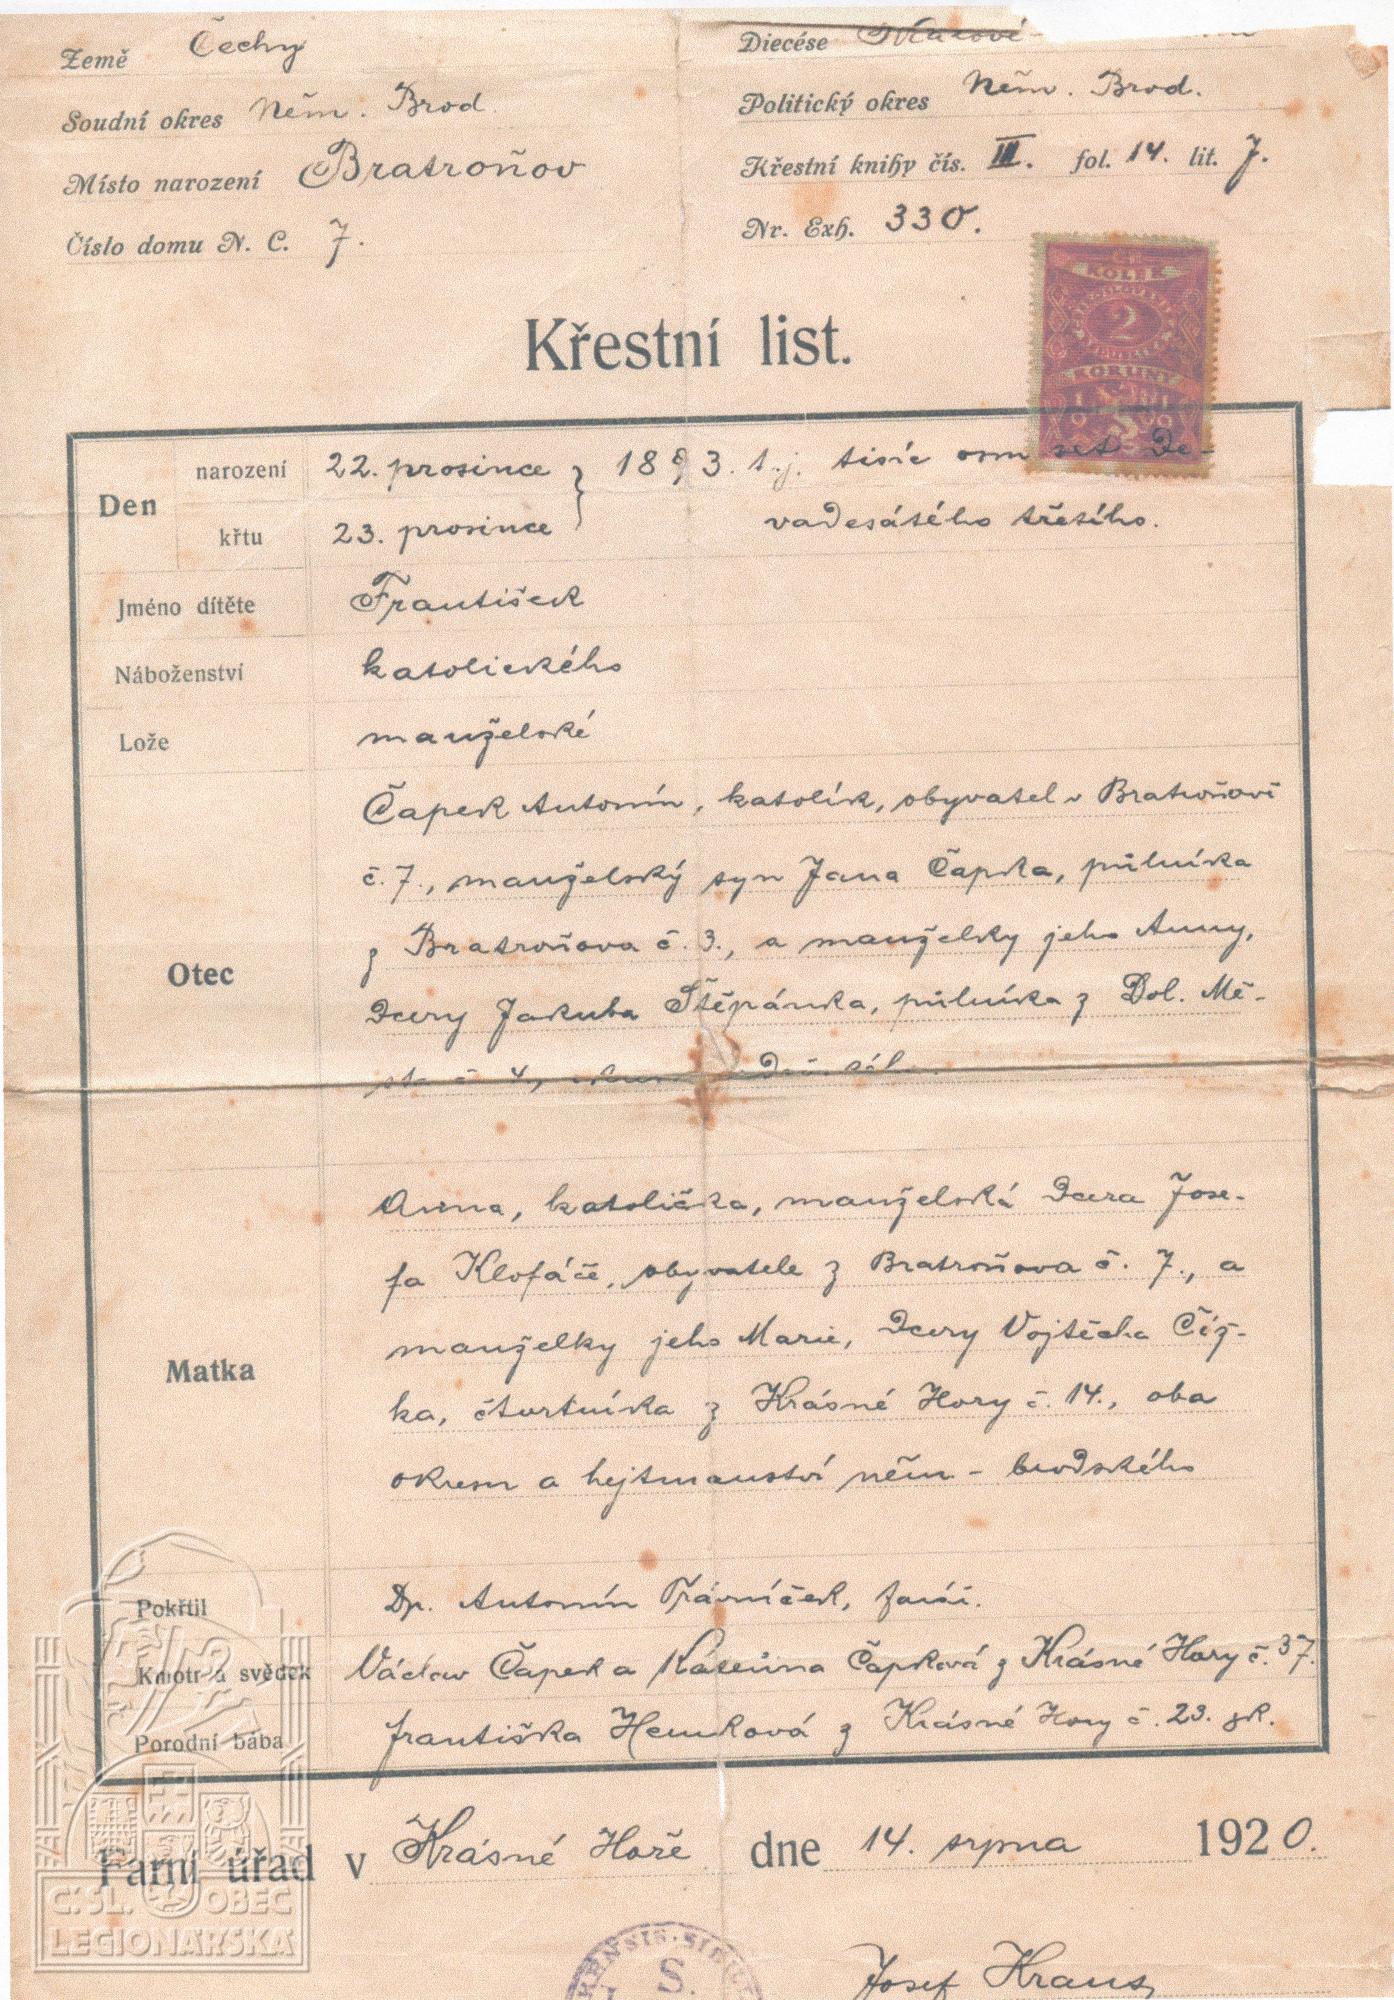 Země Čechy
Diecése
Soudní okres Něm. Brod.
Politický okres Něm. Brod.
Místo narození Bratroňov
Křestní knihy čís. III. fol. 14. lit. J.
Číslo domu N. C. 7.
Nr. Exh. 330.
KOLEK
2
KORUNY
Křestní list.
Den narození 22. prosince } 1893. t.j. tisíc osm set De-
křtu 23. prosince vadesátého třetího.
Jméno dítěte František
Náboženství katolického
Lože manželské
Otec
Čapek Antonín, katolík, obyvatel v Bratroňově
č. 7., manželský syn Jana Čapka, půlníka
z Bratroňova č. 3., a manželky jeho Anny,
dcery Jakuba Štěpánka, půlníka z Dol. Mě-
č 4,
Matka
Anna, katolička, manželská dcera Jose-
fa Klofáče, obyvatele z Bratroňova č. 7., a
manželky jeho Marie, dcery Vojtěcha Číž-
ka, čtvrtníka z Krásné Hory č. 14., oba
okresu a hejtmanství něm-brodského
Pokřtil Dp. Antonín Trávníček, farář.
Kmotr a svědek Václav Čapek a Kateřina Čapková z Krásné Hory č. 37.
Porodní bába Františka Hemková z Krásné Hory č. 23. zk.
Farní úřad v Krásné Hoře dne 14. srpna 1920.
Č.SL. OBEC
LEGIONÁŘSKÁ
S.
Josef Kraus